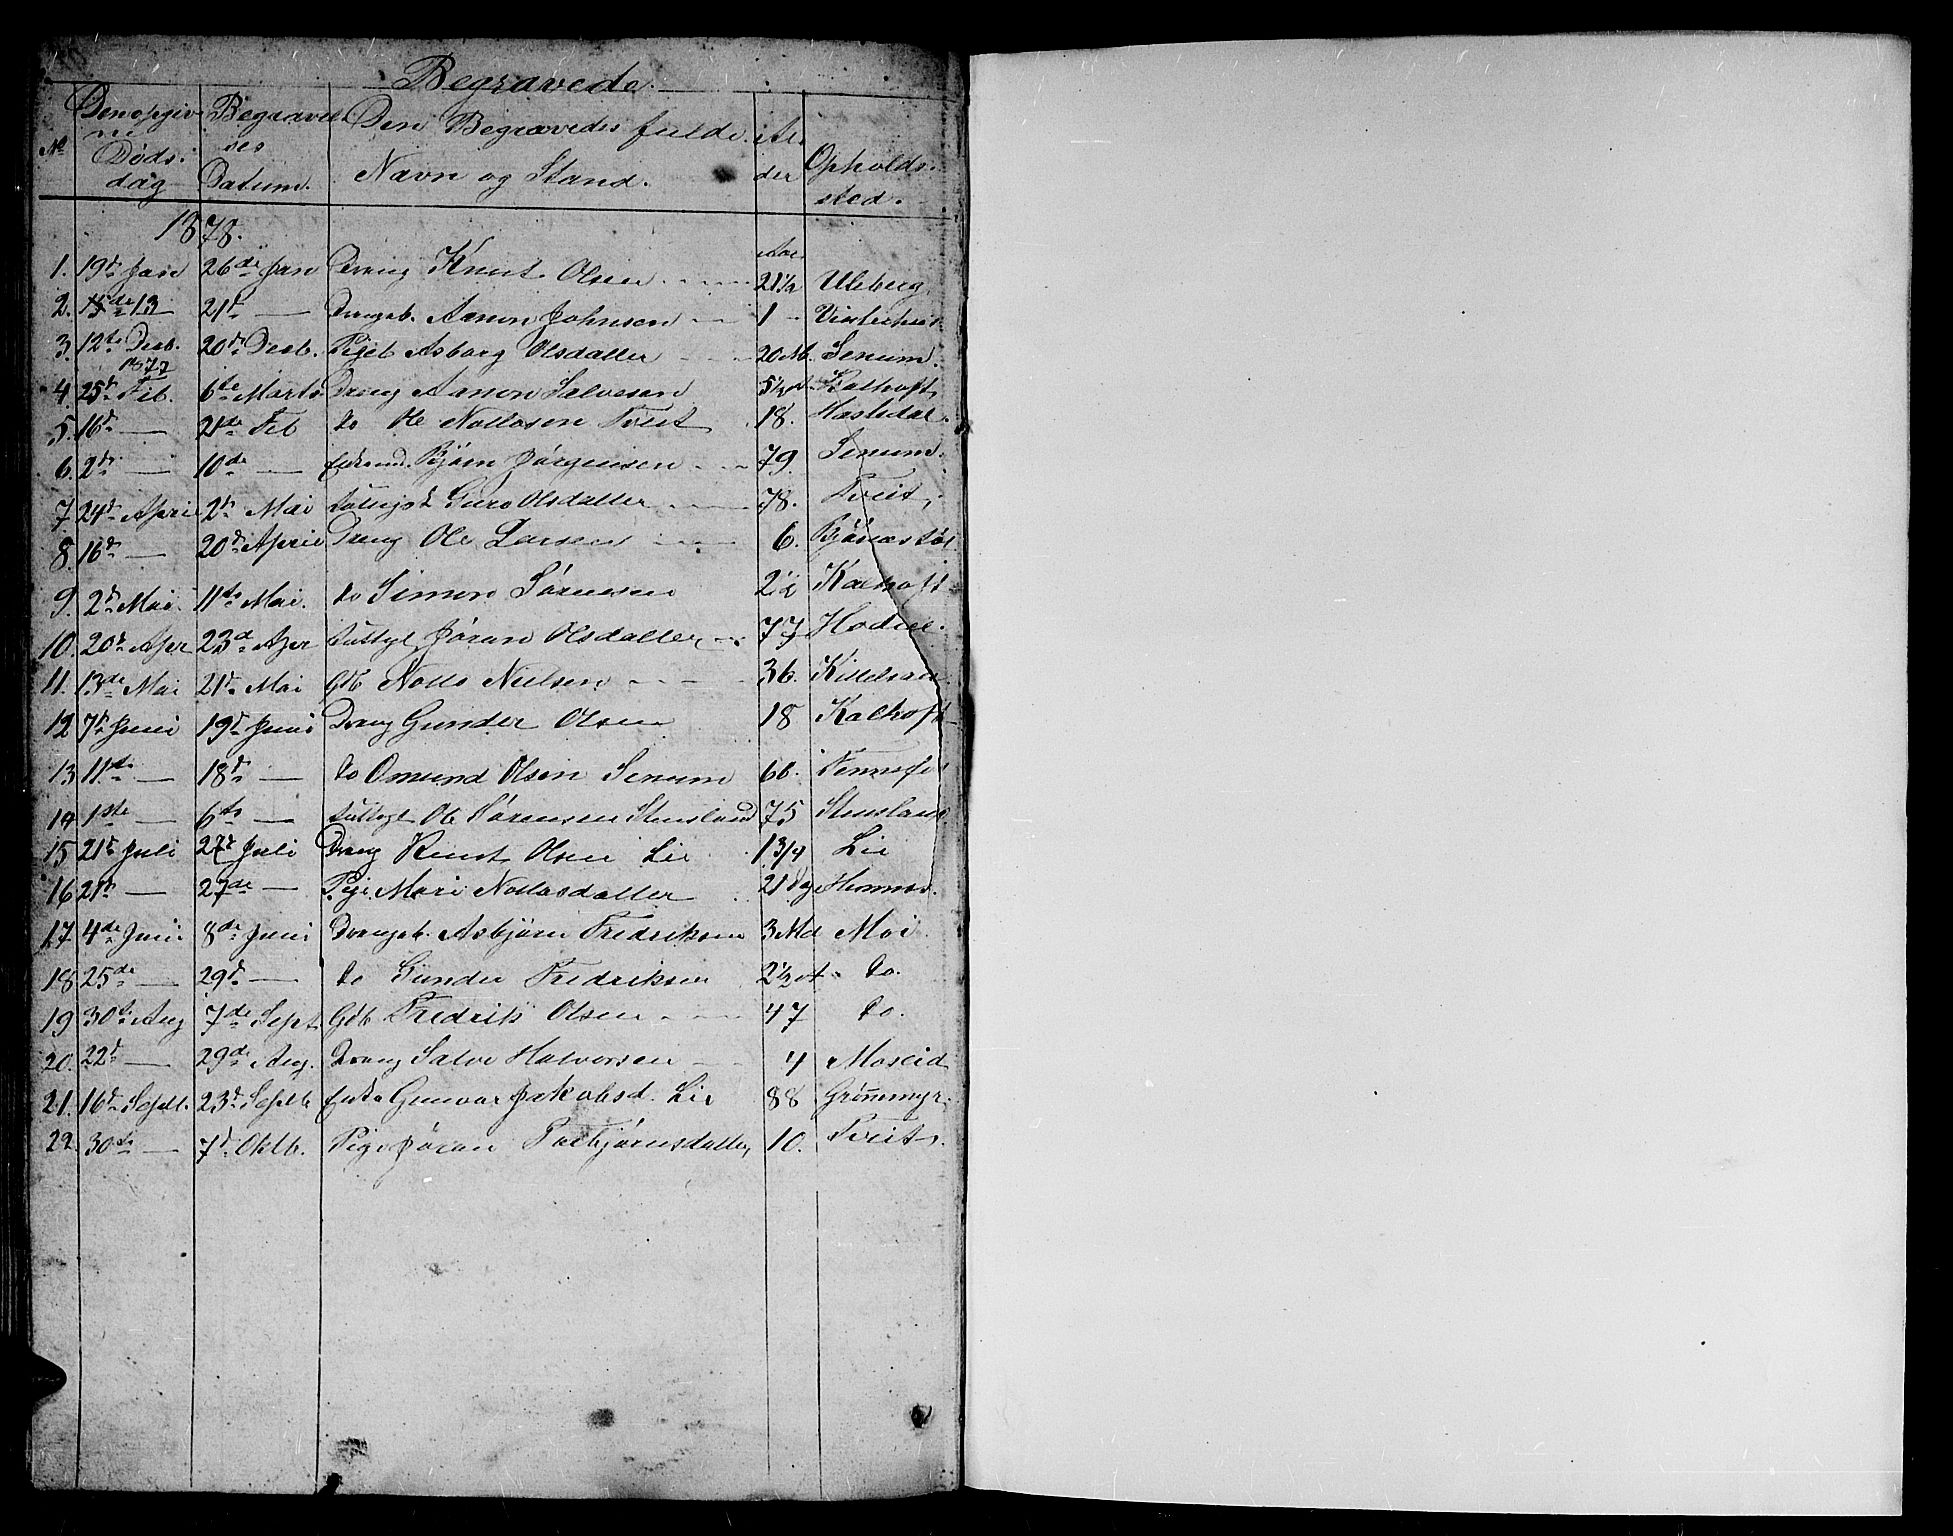 Begravede.
No Den opgivne Dødsdag Begravelses Datum. Den Begravedes fulde Navn og Stand. Alder Opholdssted.
1878.
1. 19de Jan 26de Jan Dreng Knut Olsen 2 1/2 Uleberg
2. 13 21de — Drengeb. Aanon Johnsen 1
3. 12te Decb. 1877 20de Decb. Pigeb Asborg Olsdatter 20 M. Senum
4. 25de Feb. 6te Marts Dreng Aanon Salvesen 5 1/2 Kalhoft
5. 16de — 21de Feb do Ole Nottosen Tveit 18. Hastedal
6. 2de — 10de — Enkemd. Bjørn Jørgensen 79 Senum.
7. 24de April 2de Mai Guro Olsdatter 78. Tveit
8. 16de — 20de April Dreng Ole Larsen 6.
9. 2de Mai. 11te Mai. do Simon Sørensen 2 1/2 Kalhoft
10. 20de Apr 23de Apr Jøran Olsdatter 77
11. 13de Mai 21de Mai Gdb Notto Nielsen 36.
12 7de Juni 19de Juni Dreng Gunder Olsen 18 Kalhoft
13 11te — 18de — do Omund Olsen Senum 66.
14 1ste — 6te — Ole Sørensen Stensland 75 Stensland
15 21de Juli 27de Juli Dreng Knut Olsen Lie 1 3/4 Lie
16 21de — 27de — Pige Mari Nottosdatter 21 Dg
17. 4de Juni 8de Juni Drengeb. Asbjørn Fredriksen 3 Md Moi
18 25de — 29de — do Gunder Fredriksen 2 1/2 do.
19 30te Aug 7de Sept Gdb Fredrik Olsen 47 do.
20. 22de — 29de Aug. Dreng Salve Halvorsen 4 Moseid
21. 16de Septb. 23de Septb Enke Gunvor Jakobsd. Lie 88 Grønmyr.
22. 30te — 7de Oktb. Pige Jøran Torbjørnsdatter 10. Tveit.